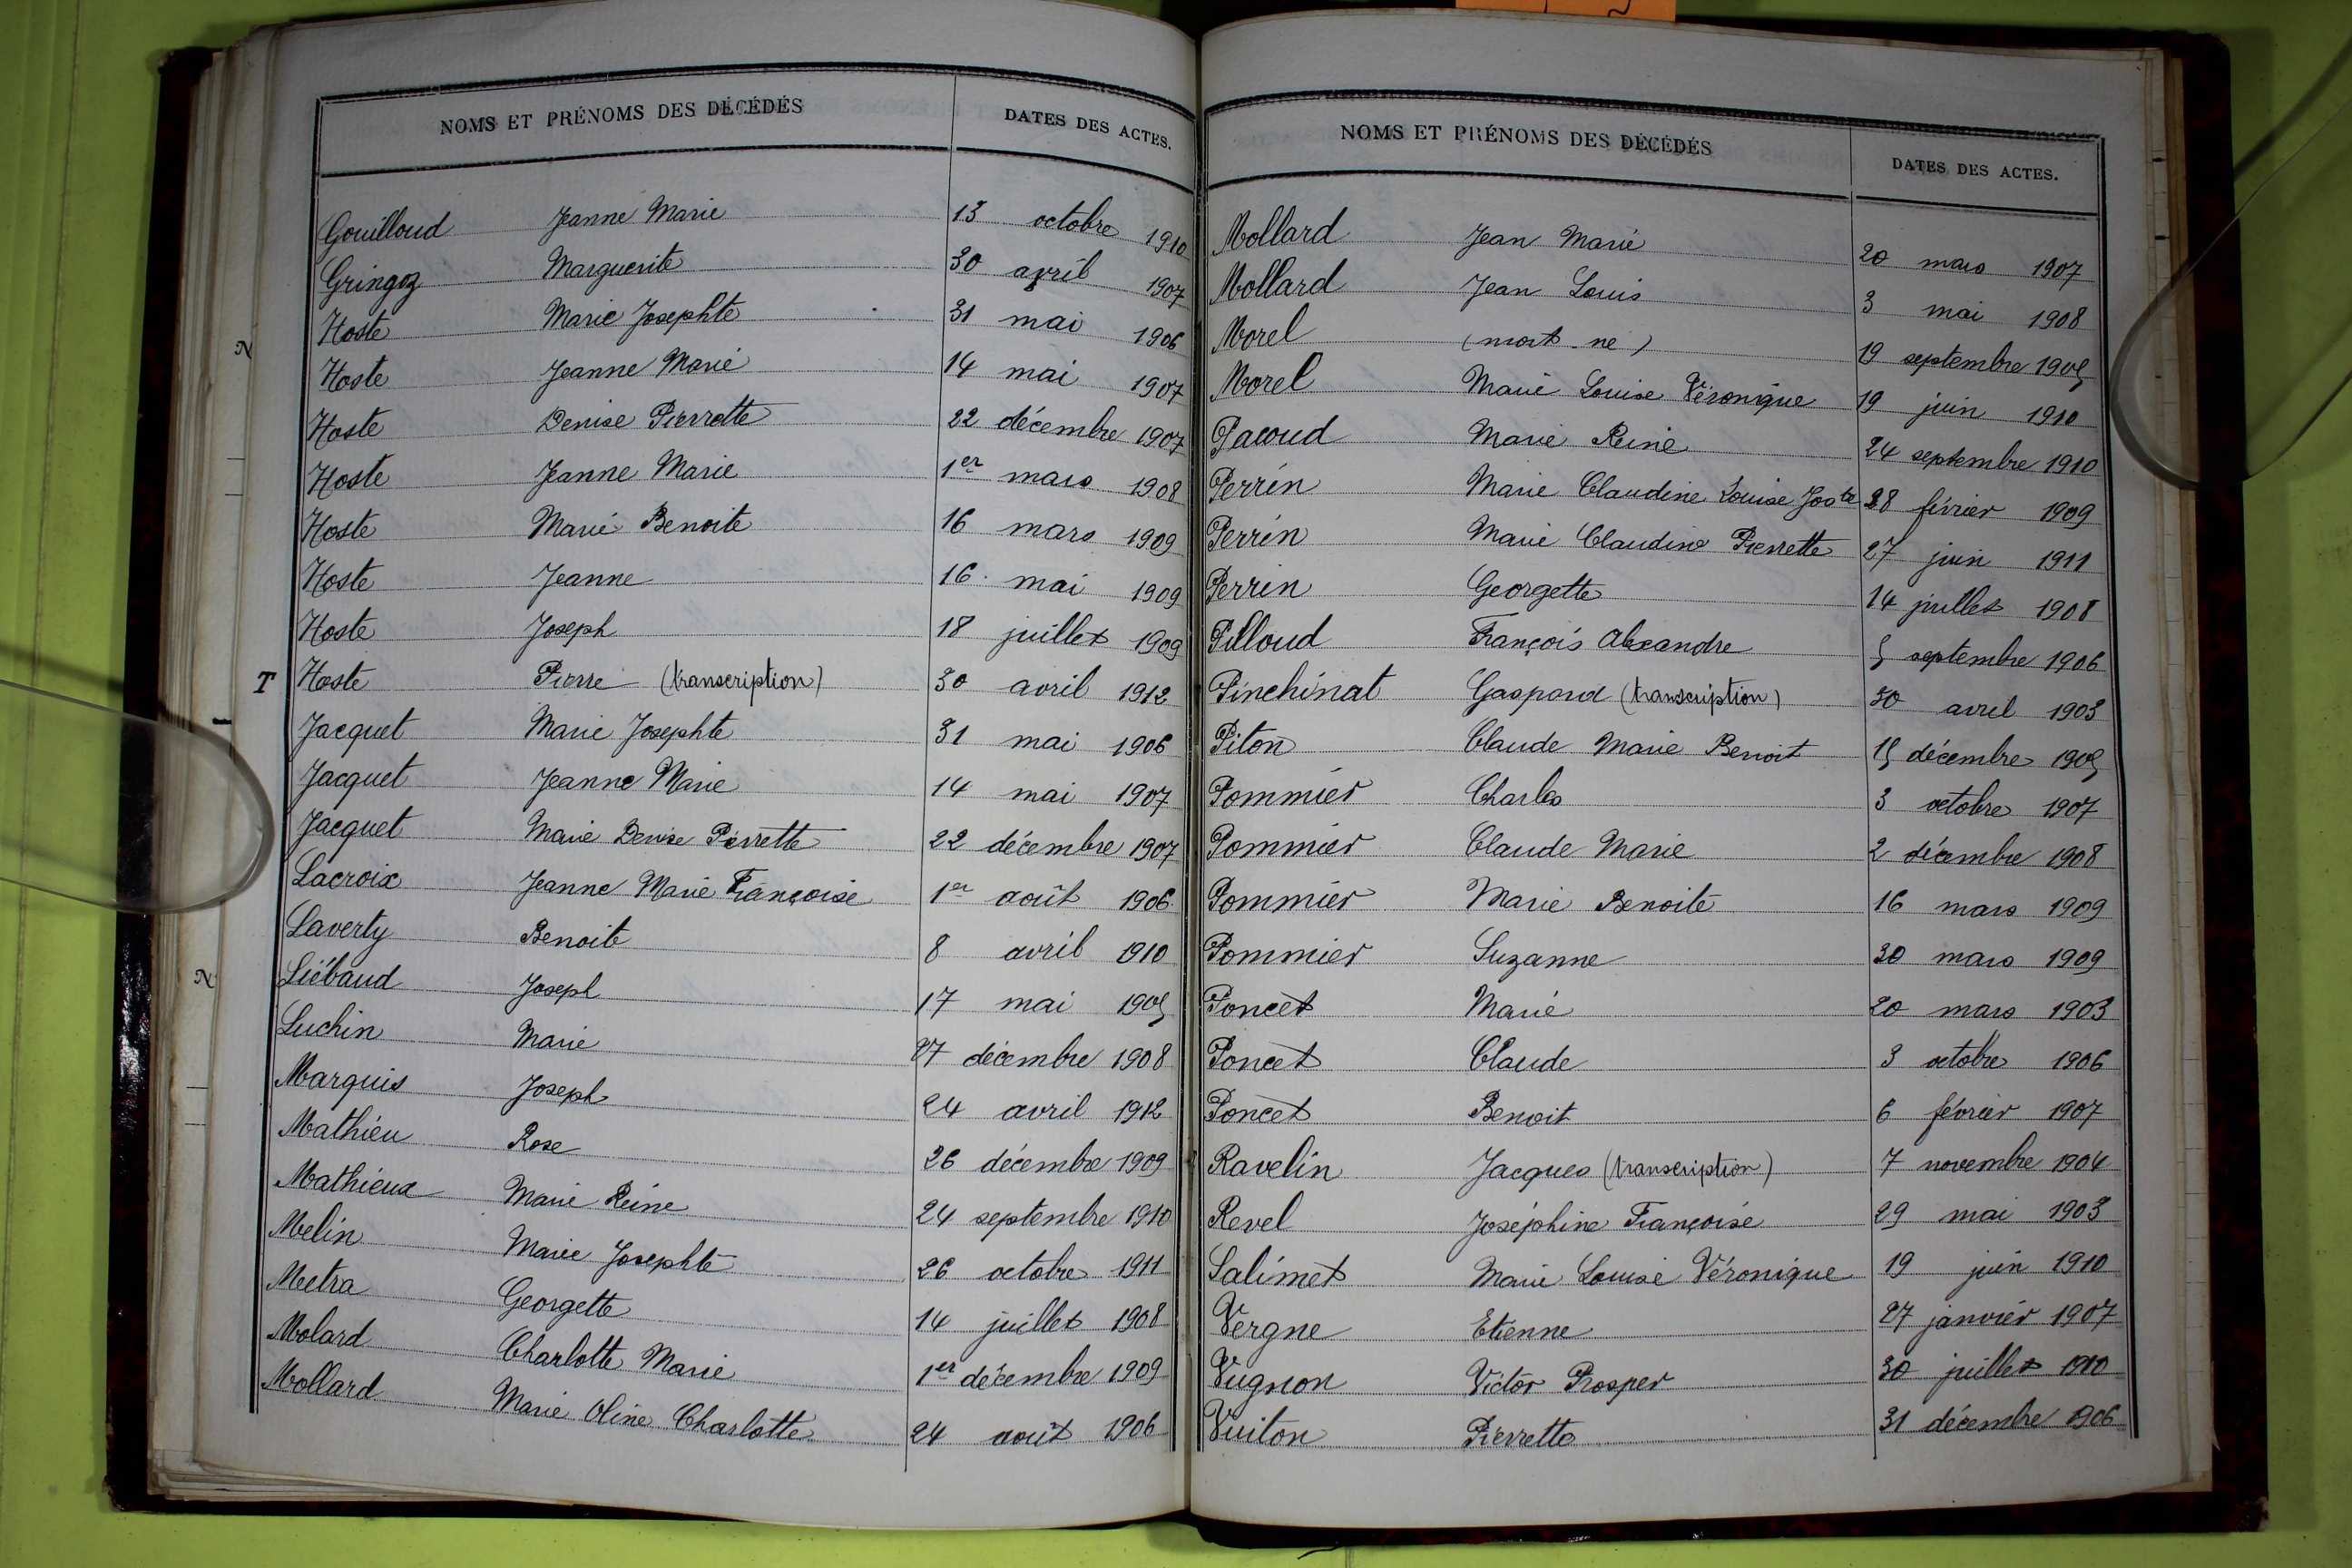 NOMS ET PRÉNOMS DES DÉCÉDÉS DATES DES ACTES.
Gouilloud Jeanne Marie 13 octobre 1910
Gringoz Marguerite 30 avril 1907
Hoste Marie Josephte 31 mai 1906
Hoste Jeanne Marie 14 mai 1907
Hoste Denise Pierrette 22 décembre 1907
Hoste Jeanne Marie 1er mars 1908
Hoste Marie Benoite 16 mars 1909
Hoste Jeanne 16 mai 1909
Hoste Joseph 18 juillet 1909
T Hoste Pierre (transcription) 30 avril 1912
Jacquet Marie Josephte 31 mai 1906
Jacquet Jeanne Marie 14 mai 1907
Jacquet Marie Denise Pierrette 22 décembre 1907
Lacroix Jeanne Marie Françoise 1er août 1906
Laverty Benoite 8 avril 1910
Liébaud Joseph 17 mai 1905
Luchin Marie 27 décembre 1908
Marquis Joseph 24 avril 1912
Mathieu Rose 26 décembre 1909
Mathieux Marie Reine 24 septembre 1910
Melin Marie Josephte 26 octobre 1911
Metra Georgette 14 juillet 1908
Molard Charlotte Marie 1er décembre 1909
Mollard Marie Oline Charlotte 24 août 1906
N
N
NOMS ET PRÉNOMS DES DÉCÉDÉS DATES DES ACTES.
Mollard Jean Marie 20 mars 1907
Mollard Jean Louis 3 mai 1908
Morel (mort-né) 19 septembre 1905
Morel Marie Louise Véronique 19 juin 1910
Pacoud Marie Reine 24 septembre 1910
Perrin Marie Claudine Louise Joste 28 février 1909
Perrin Marie Claudine Pierrette 27 juin 1911
Perrin Georgette 14 juillet 1908
Pilloud François Alexandre 5 septembre 1906
Pinchinat Gaspard (transcription) 30 avril 1903
Piton Claude Marie Benoit 15 décembre 1905
Pommier Charles 3 octobre 1907
Pommier Claude Marie 2 décembre 1908
Pommier Marie Benoite 16 mars 1909
Pommier Suzanne 30 mars 1909
Poncet Marie 20 mars 1903
Poncet Claude 3 octobre 1906
Poncet Benoit 6 février 1907
Ravelin Jacques (transcription) 7 novembre 1904
Revel Joséphine Françoise 29 mai 1903
Salimet Marie Louise Véronique 19 juin 1910
Vergne Etienne 27 janvier 1907
Vugnon Victor Prosper 30 juillet 1910
Vuiton Pierrette 31 décembre 1906